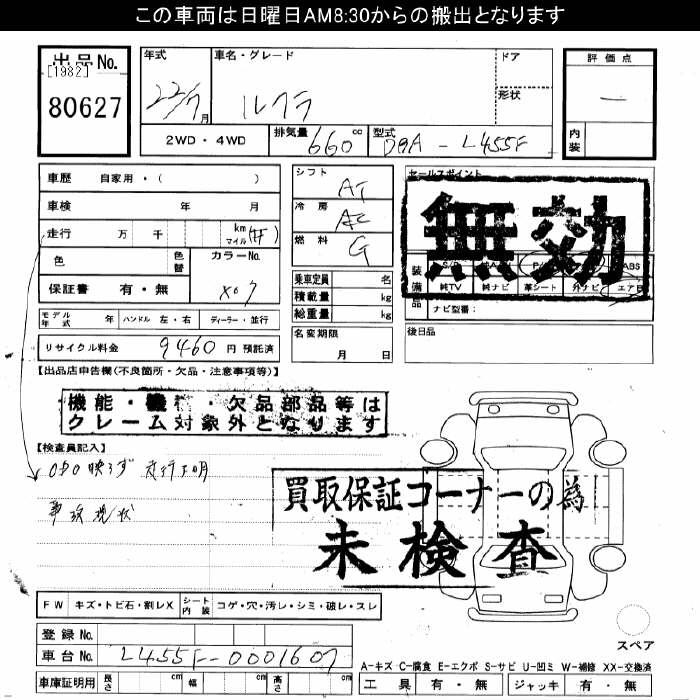 この車両は日曜日AM8:30からの搬出となります
出品No.
[1982]
80627
年式 車名・グレード ドア
22/7月 ルクラ 形状
2WD・4WD 排気量 660 cc 型式 DBA-L455F
評価点
—
内装
車歴 自家用・( )
車検 年 月
走行 万 千 km マイル
色 色替 カラーNo.
保証書 有・無 X07
モデル年式 年 ハンドル 左・右 ディーラー・並行
リサイクル料金 9460 円 預託済
シフト AT
冷房 AC
燃料 G
乗車定員 名
積載量 kg
総重量 kg
名変期限
月 日
セールスポイント
無効
装備品
S/R PS ABS
純TV 純ナビ 革シート 外ナビ エアB
ナビ型番:
後日品
【出品店申告欄(不良箇所・欠品・注意事項等)】
機能・機 ・欠品部品等は
クレーム対象外となります
【検査員記入】
ODO映らず 走行不明
事故現状
買取保証コーナーの為
未検査
FW キズ・トビ石・割レX シート内装 コゲ・穴・汚レ・シミ・破レ・スレ
登録No.
車台No. L455F-0001607
車庫証明用 長さ cm 幅 cm 高さ cm
スペア
A-キズ C-腐食 E-エクボ S-サビ U-凹ミ W-補修 XX-交換済
工具 有・無 ジャッキ 有・無